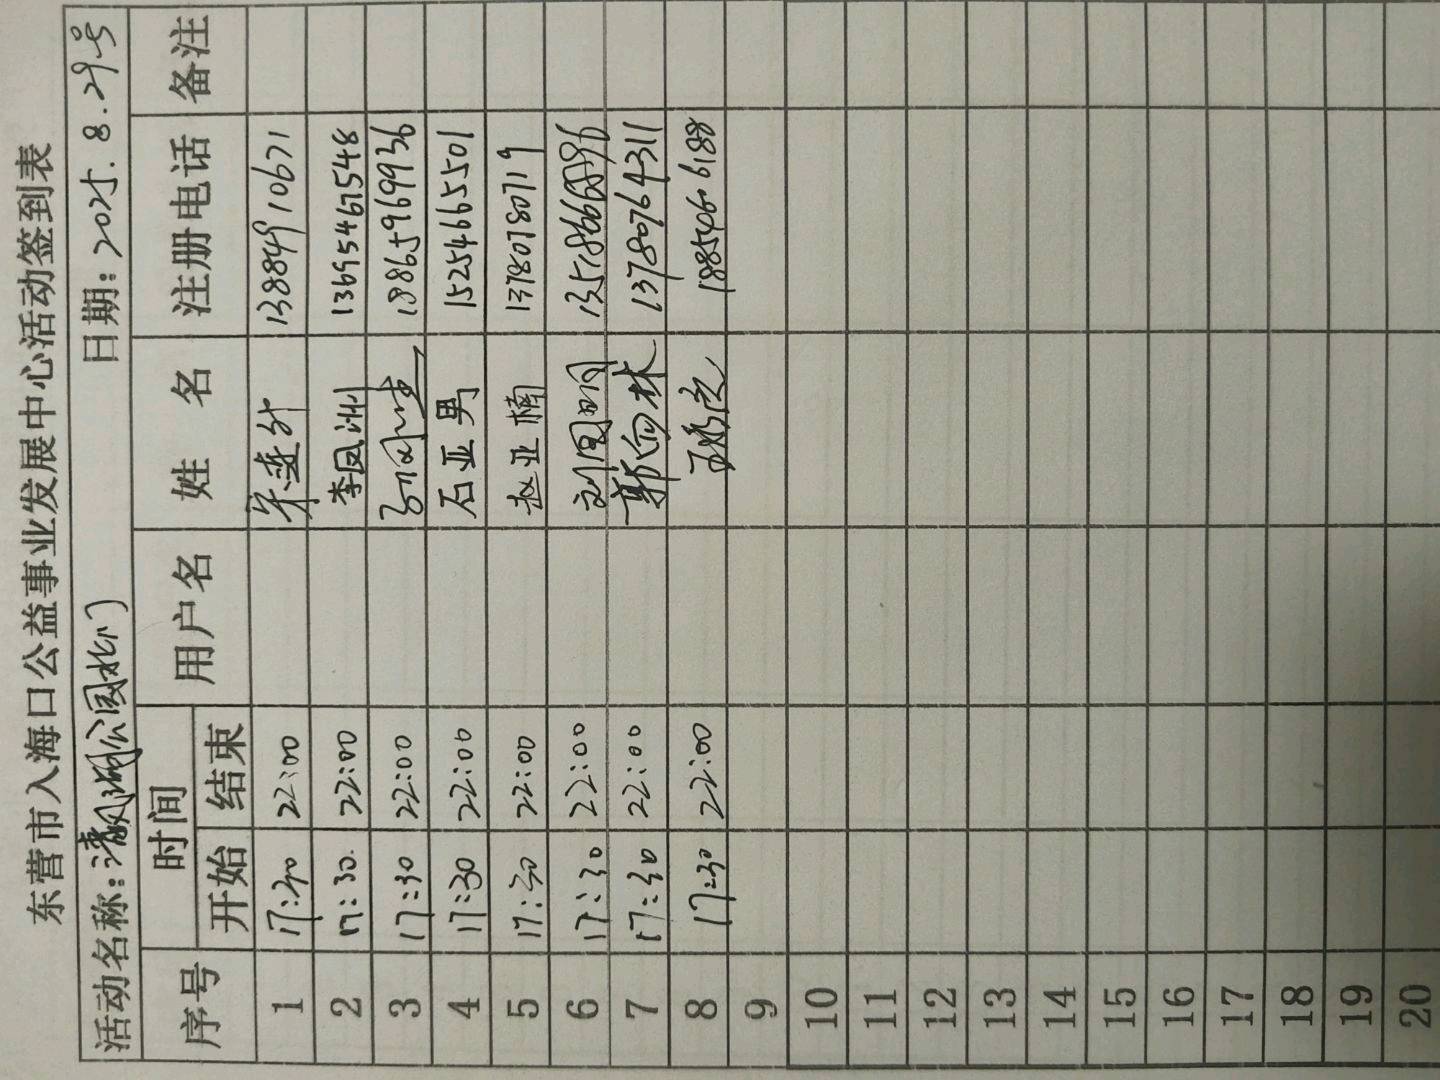 东营市入海口公益事业发展中心活动签到表
活动名称：清风湖公园北门 日期：2025.8.29号
序号 时间 用户名 姓 名 注册电话 备注
开始 结束
1 17:30 22:00 13884910671
2 17:30 22:00 李凤洲 13695467548
3 17:30 22:00 18865969936
4 17:30 22:00 石亚男 15254665501
5 17:30 22:00 赵亚楠 13780780719
6 17:30 22:00 刘国明
7 17:30 22:00 郭向林 13780764311
8 17:30 22:00 18854606188
9
10
11
12
13
14
15
16
17
18
19
20